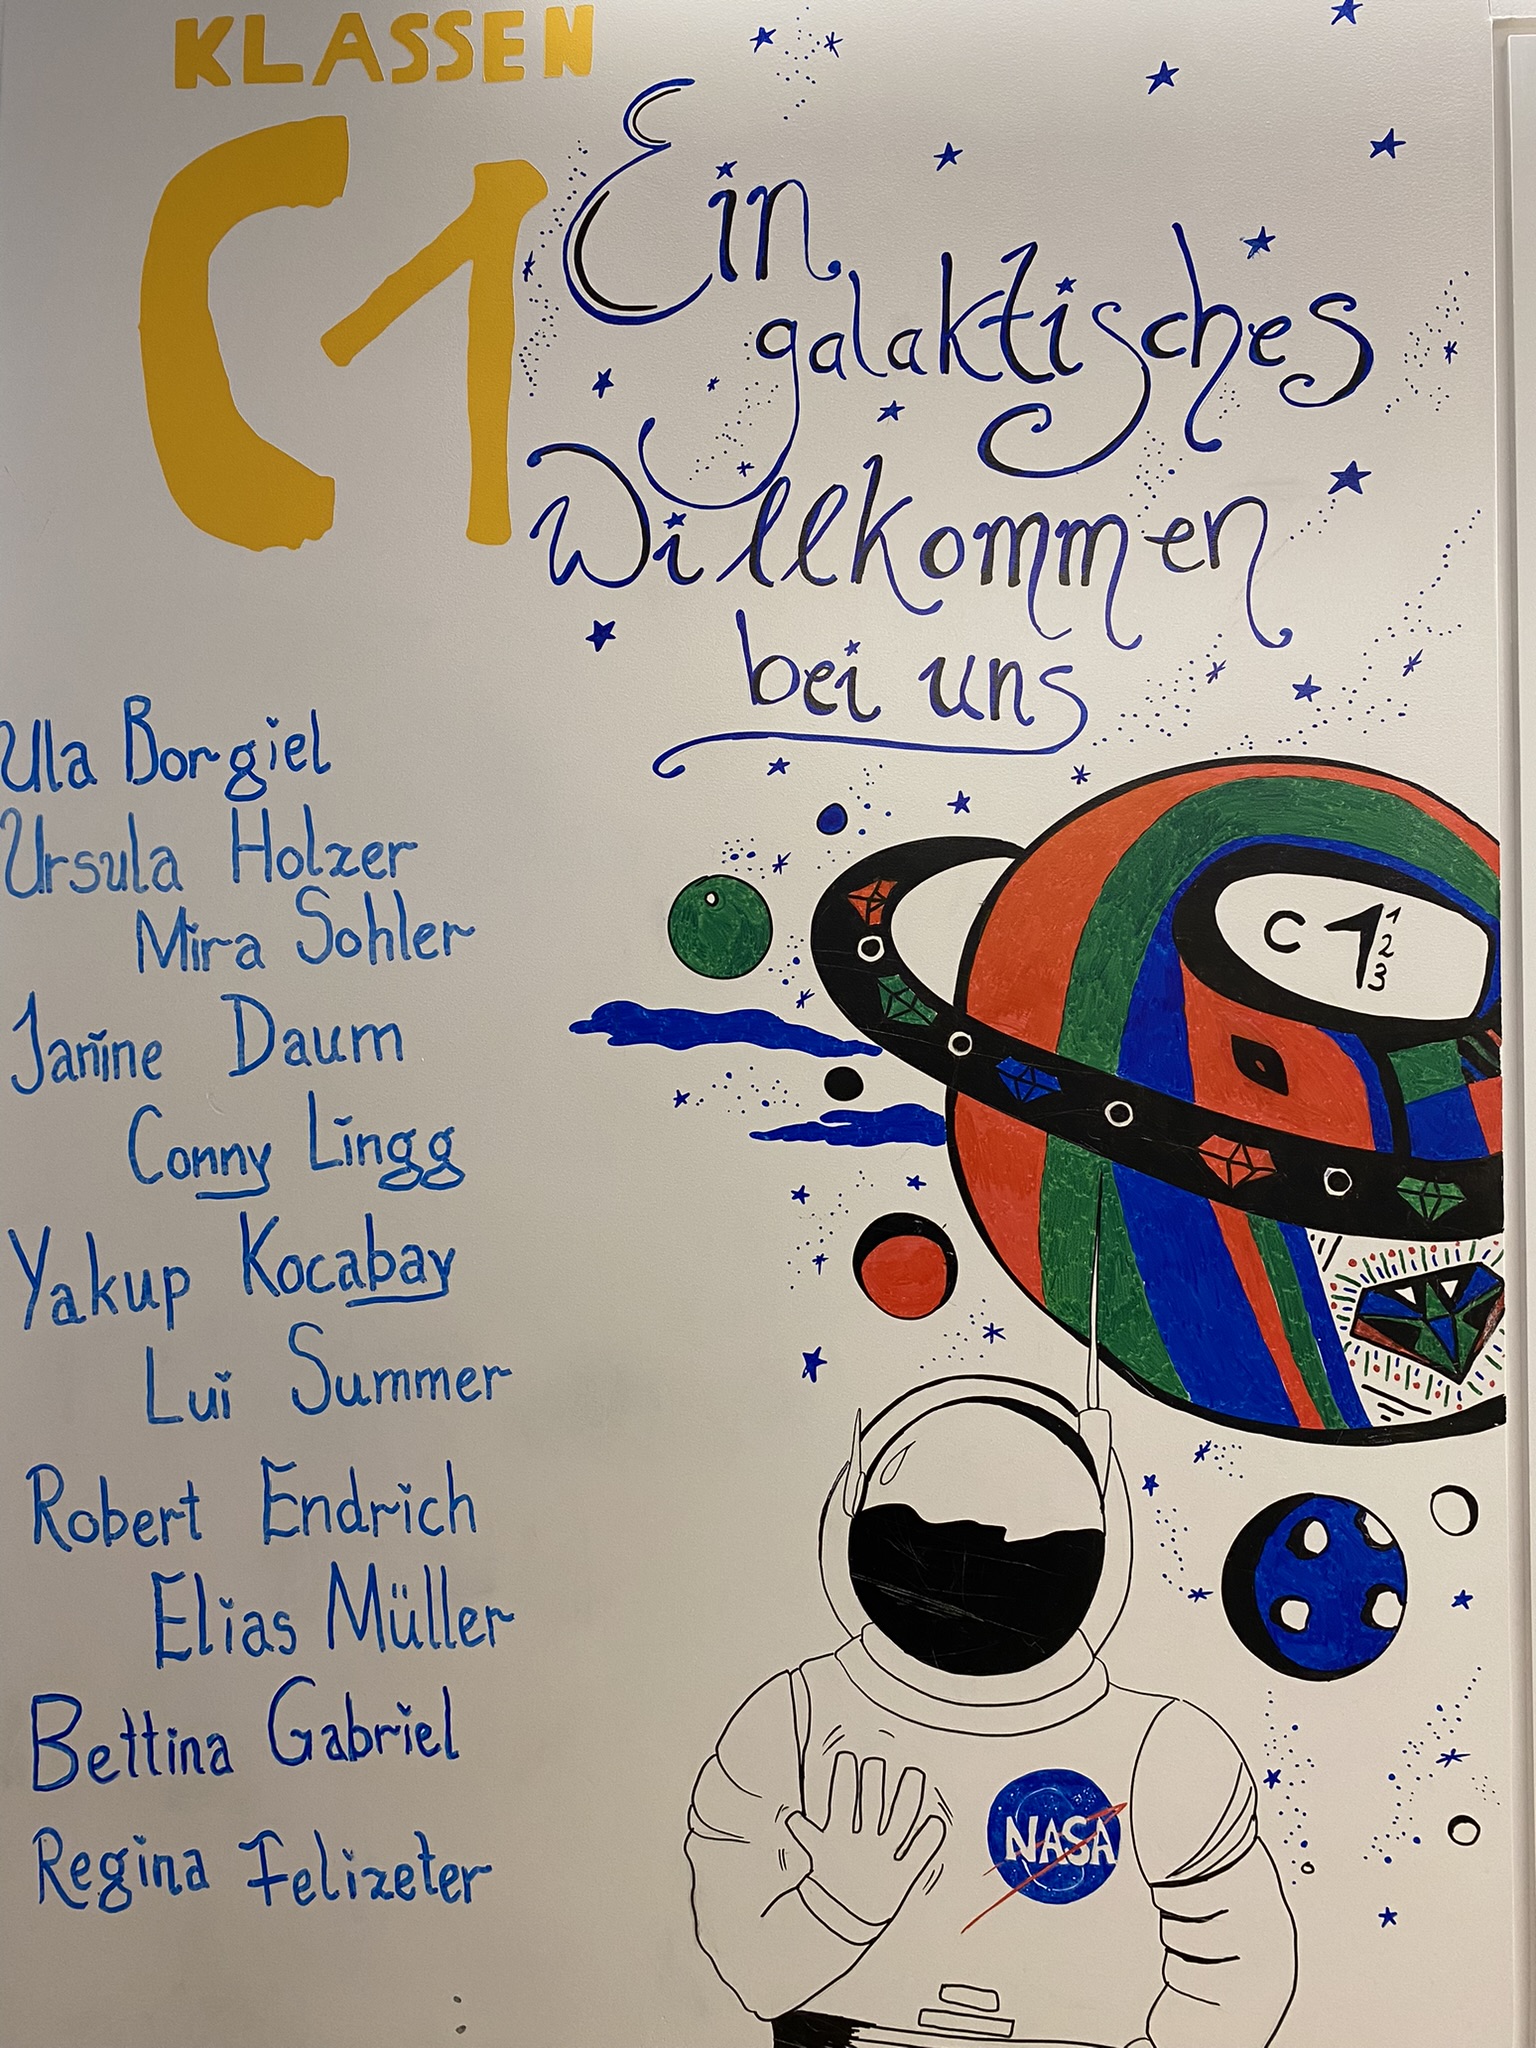 KLASSEN
C1
Ein
galaktisches
Willkommen
bei uns
Ula Borgiel
Ursula Holzer
Mira Sohler
Janine Daum
Conny Lingg
Yakup Kocabay
Lui Summer
Robert Endrich
Elias Müller
Bettina Gabriel
Regina Felizeter
C 1 1
2
3
NASA